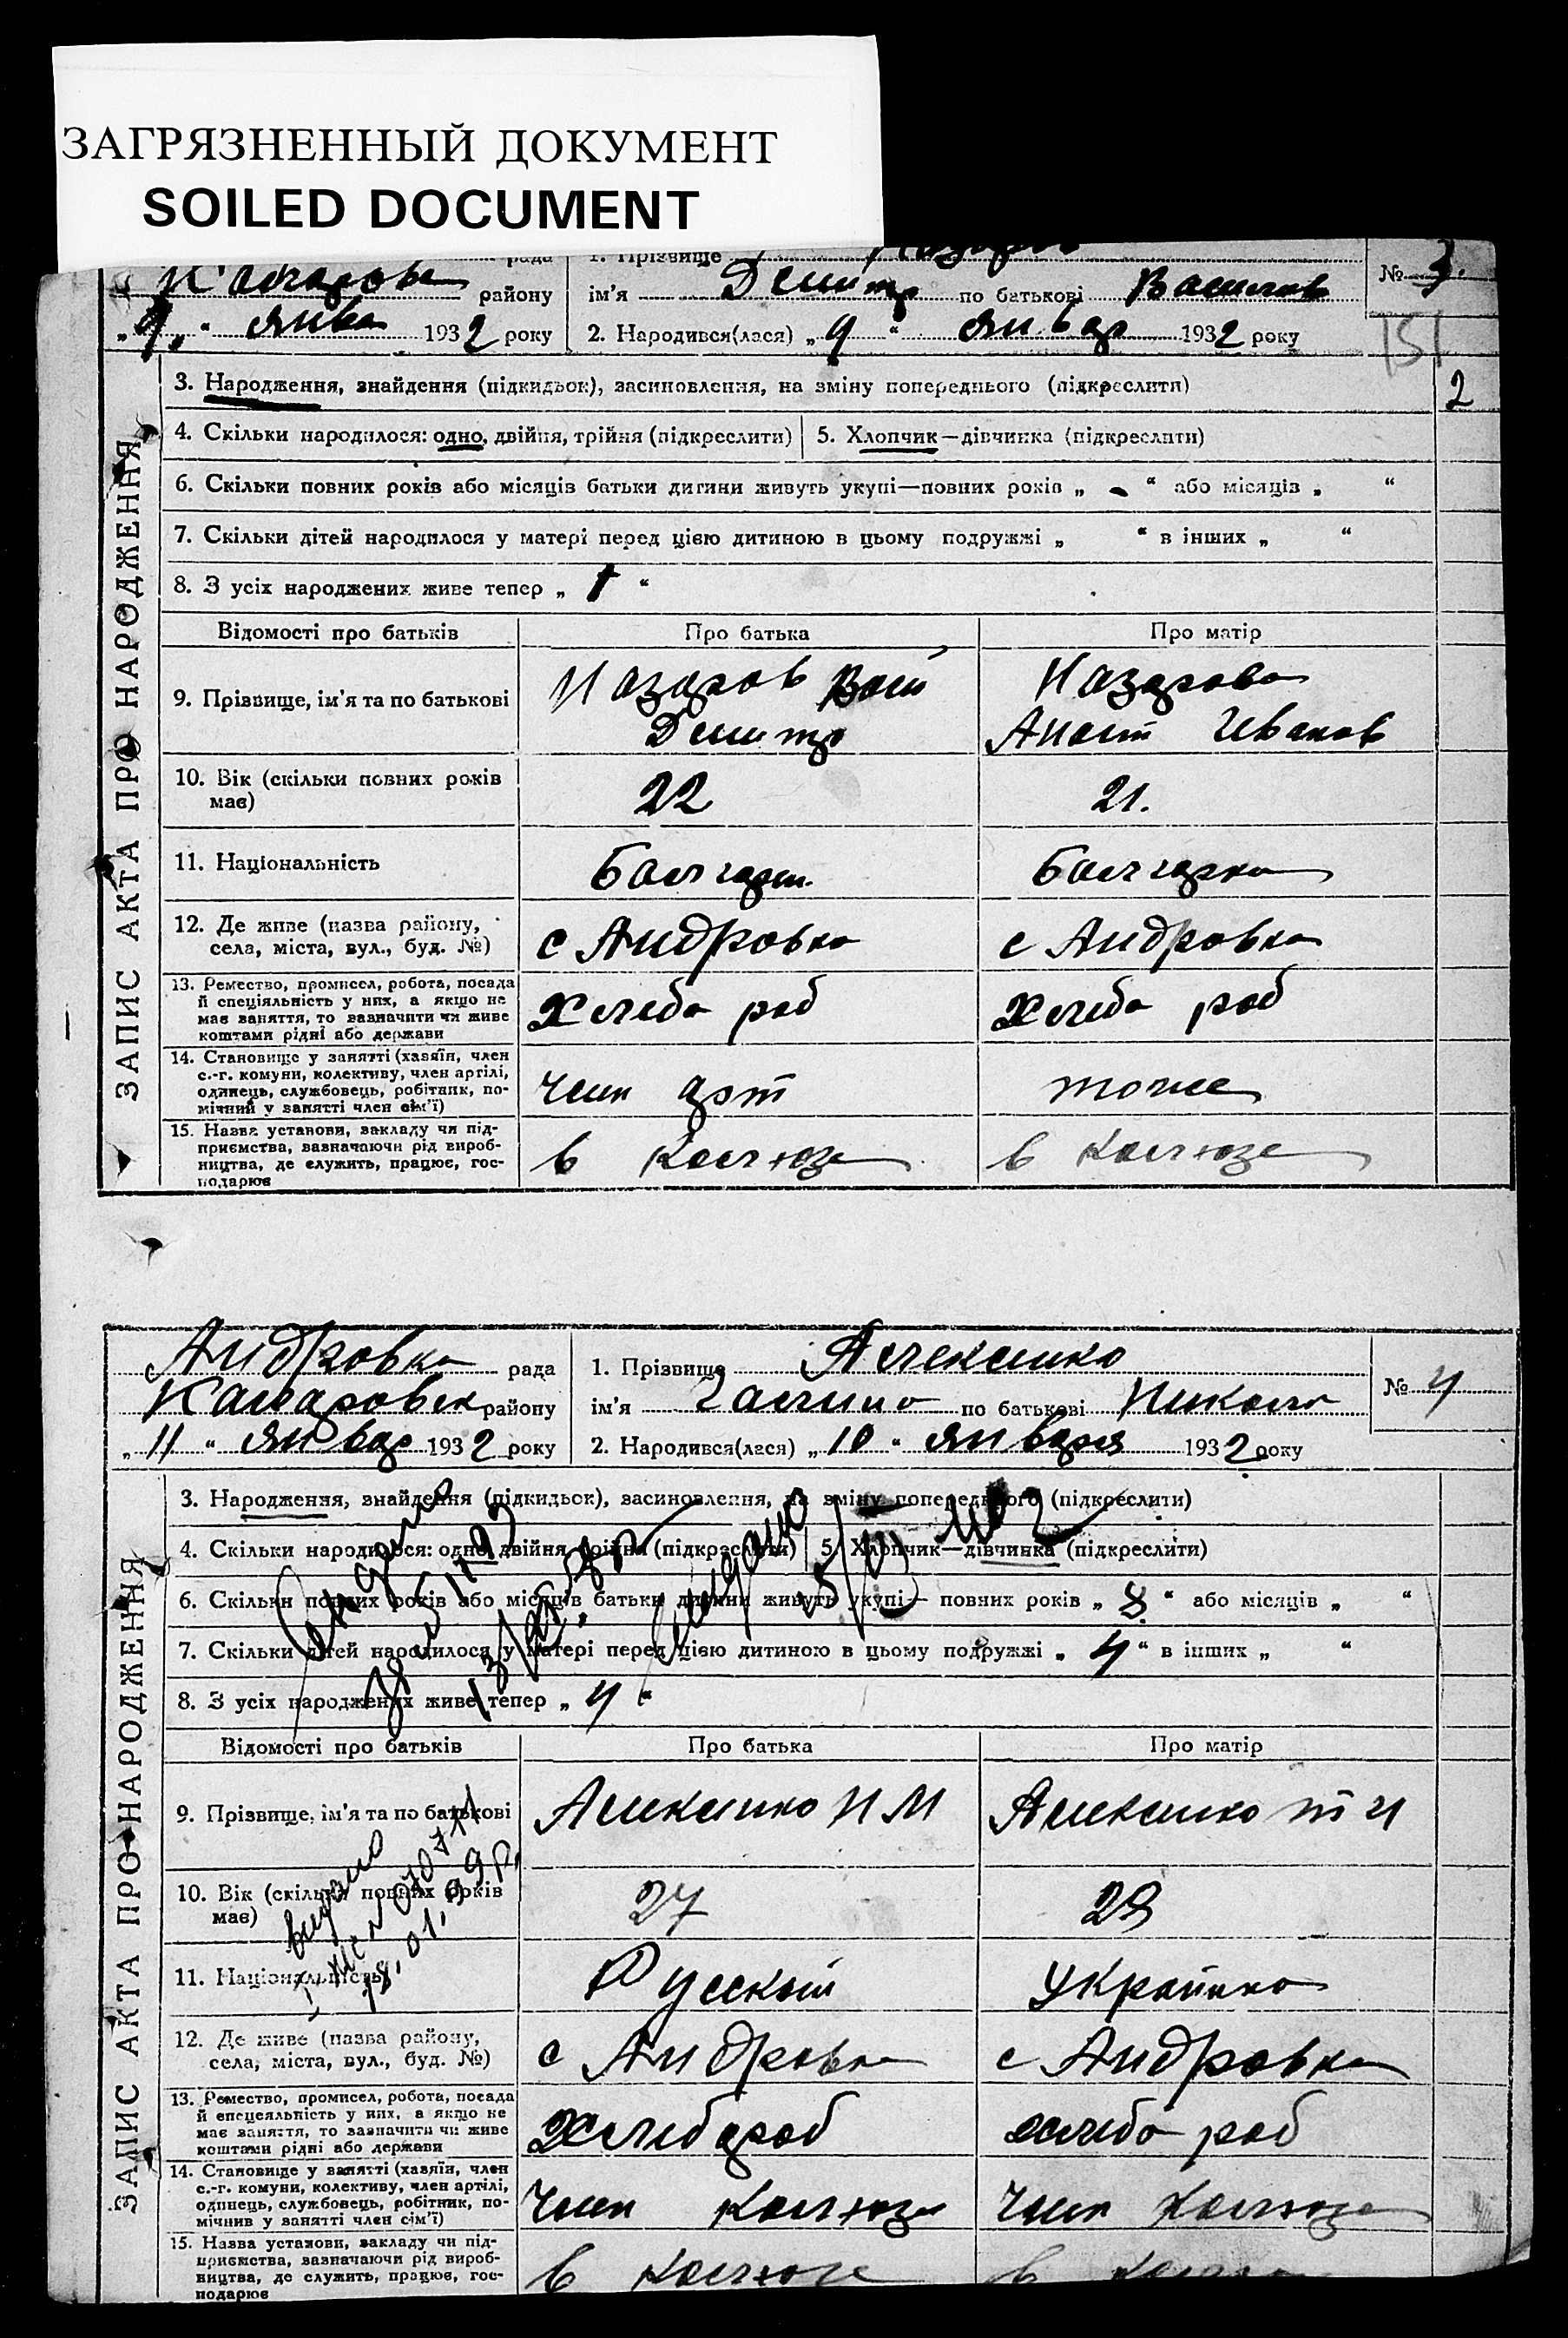 ЗАГРЯЗНЕННЫЙ ДОКУМЕНТ
SOILED DOCUMENT
рада 1. Прізвище
району ім'я Дмитр по батькові Василев № 3.
„9.“ янва 1932 року 2. Народився(лася) „9“ январ 1932 року
151
3. Народження, знайдення (підкидьок), засиновлення, на зміну попереднього (підкреслити) 2
4. Скільки народилося: одно, двійня, трійня (підкреслити) 5. Хлопчик—дівчинка (підкреслити)
6. Скільки повних років або місяців батьки дитини живуть укупі—повних років „ - “ або місяців „ “
7. Скільки дітей народилося у матері перед цією дитиною в цьому подружжі „ “ в інших „ “
8. З усіх народжених живе тепер „ 1 “
ЗАПИС АКТА ПРО НАРОДЖЕННЯ
Відомості про батьків Про батька Про матір
9. Прізвище, ім'я та по батькові Назаров Васи Дмитр Назарова Анаст Иванов
10. Вік (скільки повних років має) 22 21.
11. Національність Болгарин Болгарка
12. Де живе (назва району, села, міста, вул., буд. №) с Андровка с Андровка
13. Ремество, промисел, робота, посада й спеціяльність у них, а якщо не має заняття, то зазначити чи живе коштами рідні або держави Хлебо роб Хлебо роб
14. Становище у занятті (хазяїн, член с.-г. комуни, колективу, член артілі, одинець, службовець, робітник, помічний у занятті член сім'ї) член арт тоже
15. Назва установи, закладу чи підприємства, зазначаючи рід виробництва, де служить, працює, господарює в Колхозе в Колхозе
Андровка рада 1. Прізвище Алексенко
району ім'я Галина по батькові Никола № 4
„11“ январ 1932 року 2. Народився(лася) „10“ января 1932 року
3. Народження, знайдення (підкидьок), засиновлення, на зміну попереднього (підкреслити)
4. Скільки народилося: одно, двійня, трійня (підкреслити) 5. Хлопчик—дівчинка (підкреслити)
6. Скільки повних років або місяців батьки дитини живуть укупі— повних років „ 8. “ або місяців „ “
7. Скільки дітей народилося у матері перед цією дитиною в цьому подружжі „ 4 “ в інших „ “
8. З усіх народжених живе тепер „ 4 “
ЗАПИС АКТА ПРО НАРОДЖЕННЯ
Відомості про батьків Про батька Про матір
9. Прізвище, ім'я та по батькові Алексенко Н М Алексенко т и
видано
10. Вік (скільки повних років має) 27 29
11. Національність Русский Украинка
12. Де живе (назва району, села, міста, вул., буд. №) с Андровка с Андровка
13. Ремество, промисел, робота, посада й спецеяльність у них, а якщо не має заняття, то зазначити чи живе коштами рідні або держави Хлебороб хлебо роб
14. Становище у занятті (хазяїн, член с.-г. комуни, колективу, член артілі, одинець, службовець, робітник, помічнив у занятті член сім'ї) член Колхоза член Колхоза
15. Назва установи, закладу чи підприємства, зазначаючи рід виробництва, де служить, працює, господарює в Колхозе в